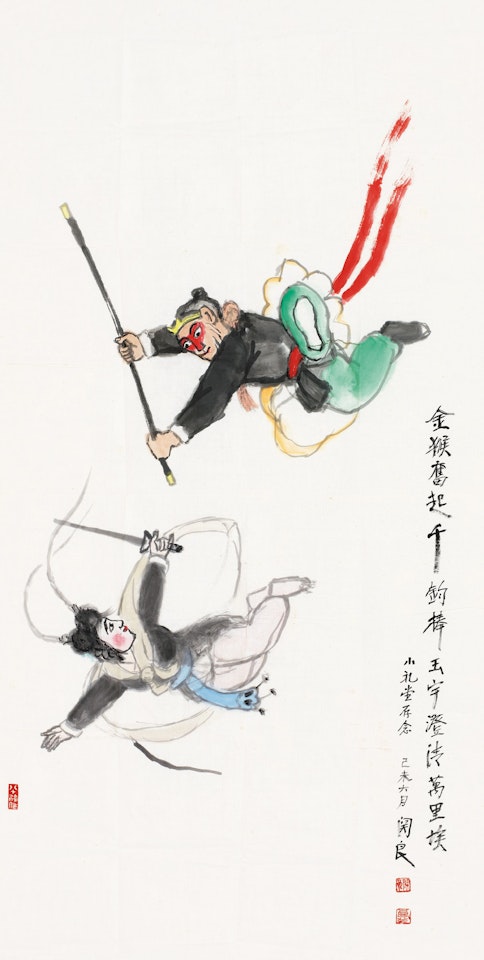 金猴奮起千鈞棒玉宇澄清萬里埃
小礼堂存念
己未六月 関良